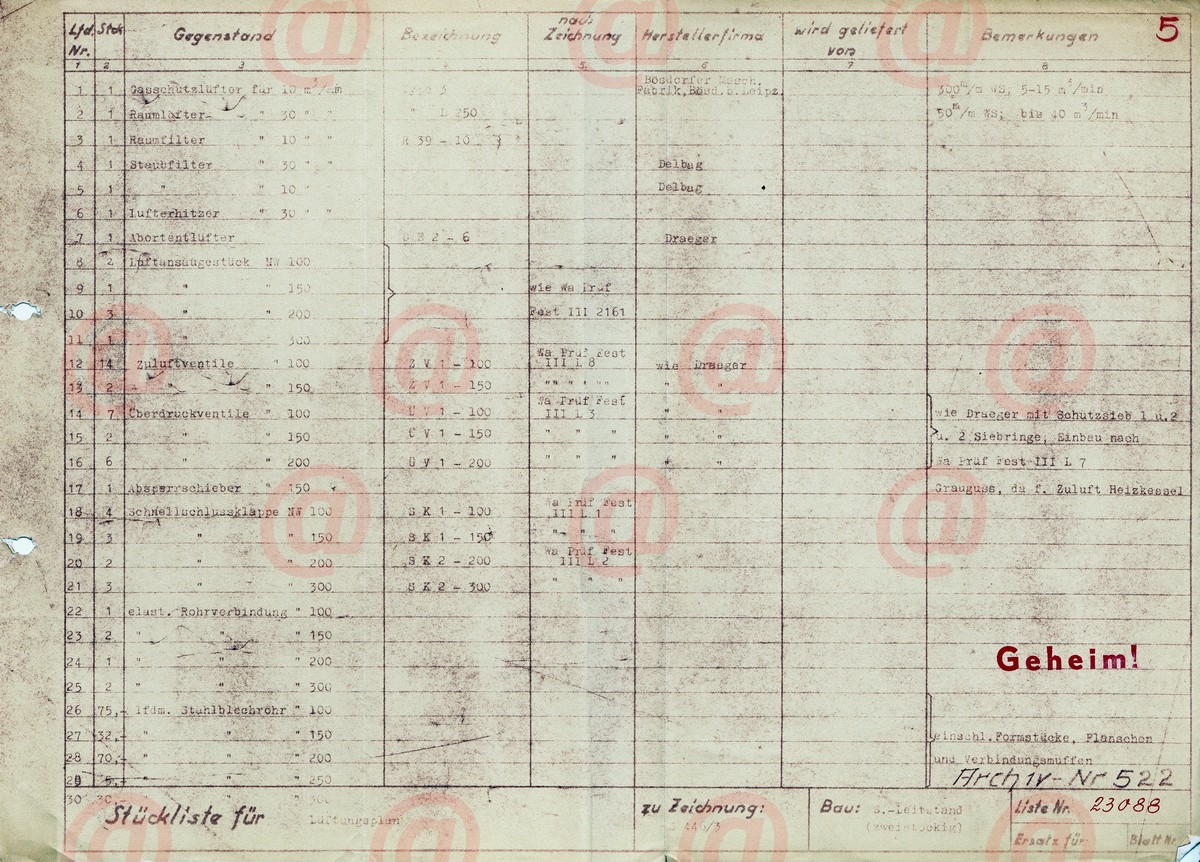 Lfd. Nr. Stck Gegenstand Bezeichnung nach Zeichnung Herstellerfirma wird geliefert von Bemerkungen 5
1 2 3 5 6 7 8
1 1 Gasschutzlüfter für 10 m³/mm Bösdorfer Masch. Fabrik, Bösd. b. Leipz. 300 m/m WS; 5-15 m³/min
2 1 Raumlüfter " 30 " " " L 250 50 m/m WS; bis 40 m³/min
3 1 Raumfilter " 10 " " R 39 - 10
4 1 Staubfilter " 30 " " Delbag
5 1 " " 10 " Delbag
6 1 Lufterhitzer " 30 " "
7 1 Abortentlüfter 2 - 6 Draeger
8 2 Luftansaugestück NW 100
9 1 " " 150 wie Wa Prüf
10 3 " " 200 Fest III 2161
11 1 " " 300
12 14 Zuluftventile " 100 Z V 1 - 100 Wa Prüf Fest III L 8 wie Draeger
13 2 " " 150 Z V 1 - 150 " " " " " " "
14 7 Überdruckventile " 100 Ü V 1 - 100 Wa Prüf Fest III L 3 " " wie Draeger mit Schutzsieb 1 u.2
15 2 " " 150 Ü V 1 - 150 " " " " " u. 2 Siebringe, Einbau nach
16 6 " " 200 Ü V 1 - 200 " " " " " Wa Prüf Fest III L 7
17 1 Absperrschieber " 150 Grauguss, da f. Zuluft Heizkessel
18 4 Schnellschlussklappe NW 100 S K 1 - 100 Wa Prüf Fest III L 1
19 3 " " 150 S K 1 - 150 " " "
20 2 " " 200 S K 2 - 200 Wa Prüf Fest III L 2
21 3 " 300 S K 2 - 300 " " "
22 1 elast. Rohrverbindung " 100
23 2 " " " 150
24 1 " " " 200
25 2 " " " 300
26 75,- lfdm. Stahlblechrohr " 100
27 32,- " " " 150 einschl. Formstücke, Flanschen
28 70,- " " " 200 und Verbindungsmuffen
29 5,- " " " 250
30 30,- " " 300
Geheim!
Archiv-Nr 522
Stückliste für Lüftungsplan
zu Zeichnung:
Bau: S.-Leitstand (zweistöckig)
Liste Nr. 23088
Ersatz für: Blatt Nr.